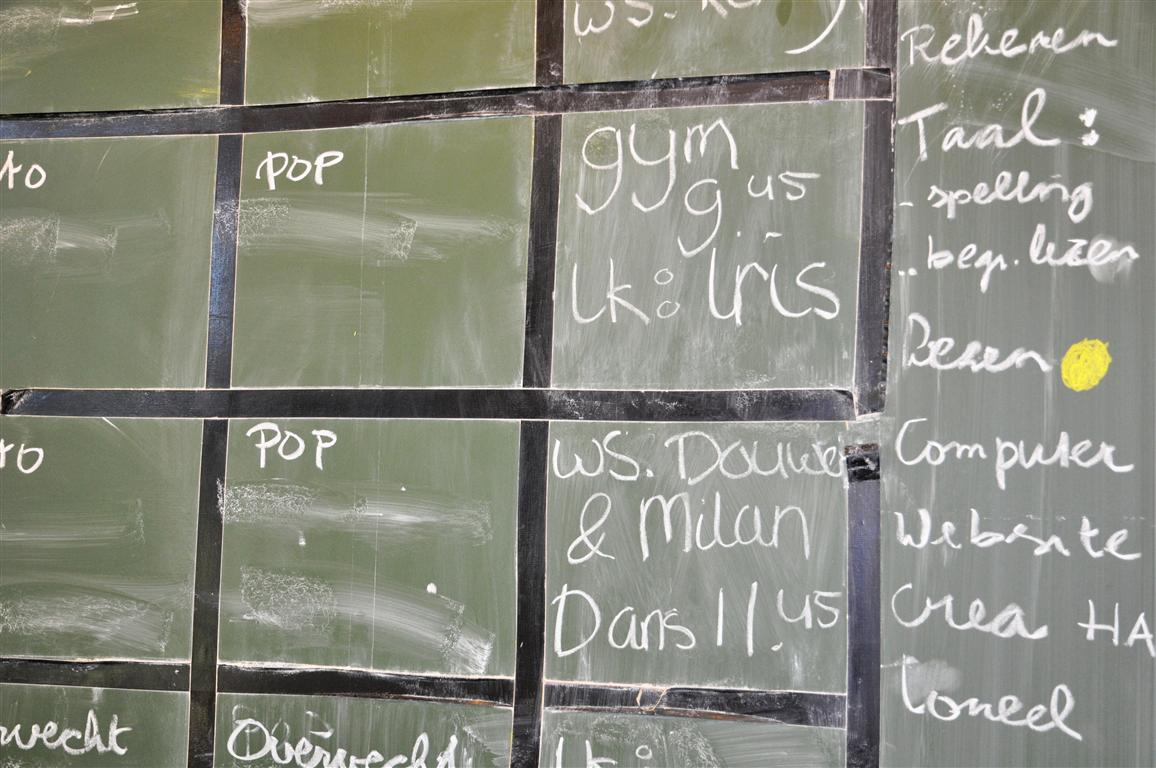 Rekenen
Taal:
- spelling
.. beg. lezen
Lezen
Computer
Website
Crea HA
toneel
WS.
to
POP
gym
9.45
lk: Iris
to
POP
WS. Douwe
& Milan
Dans 11.45
wecht
Overwecht
lk: